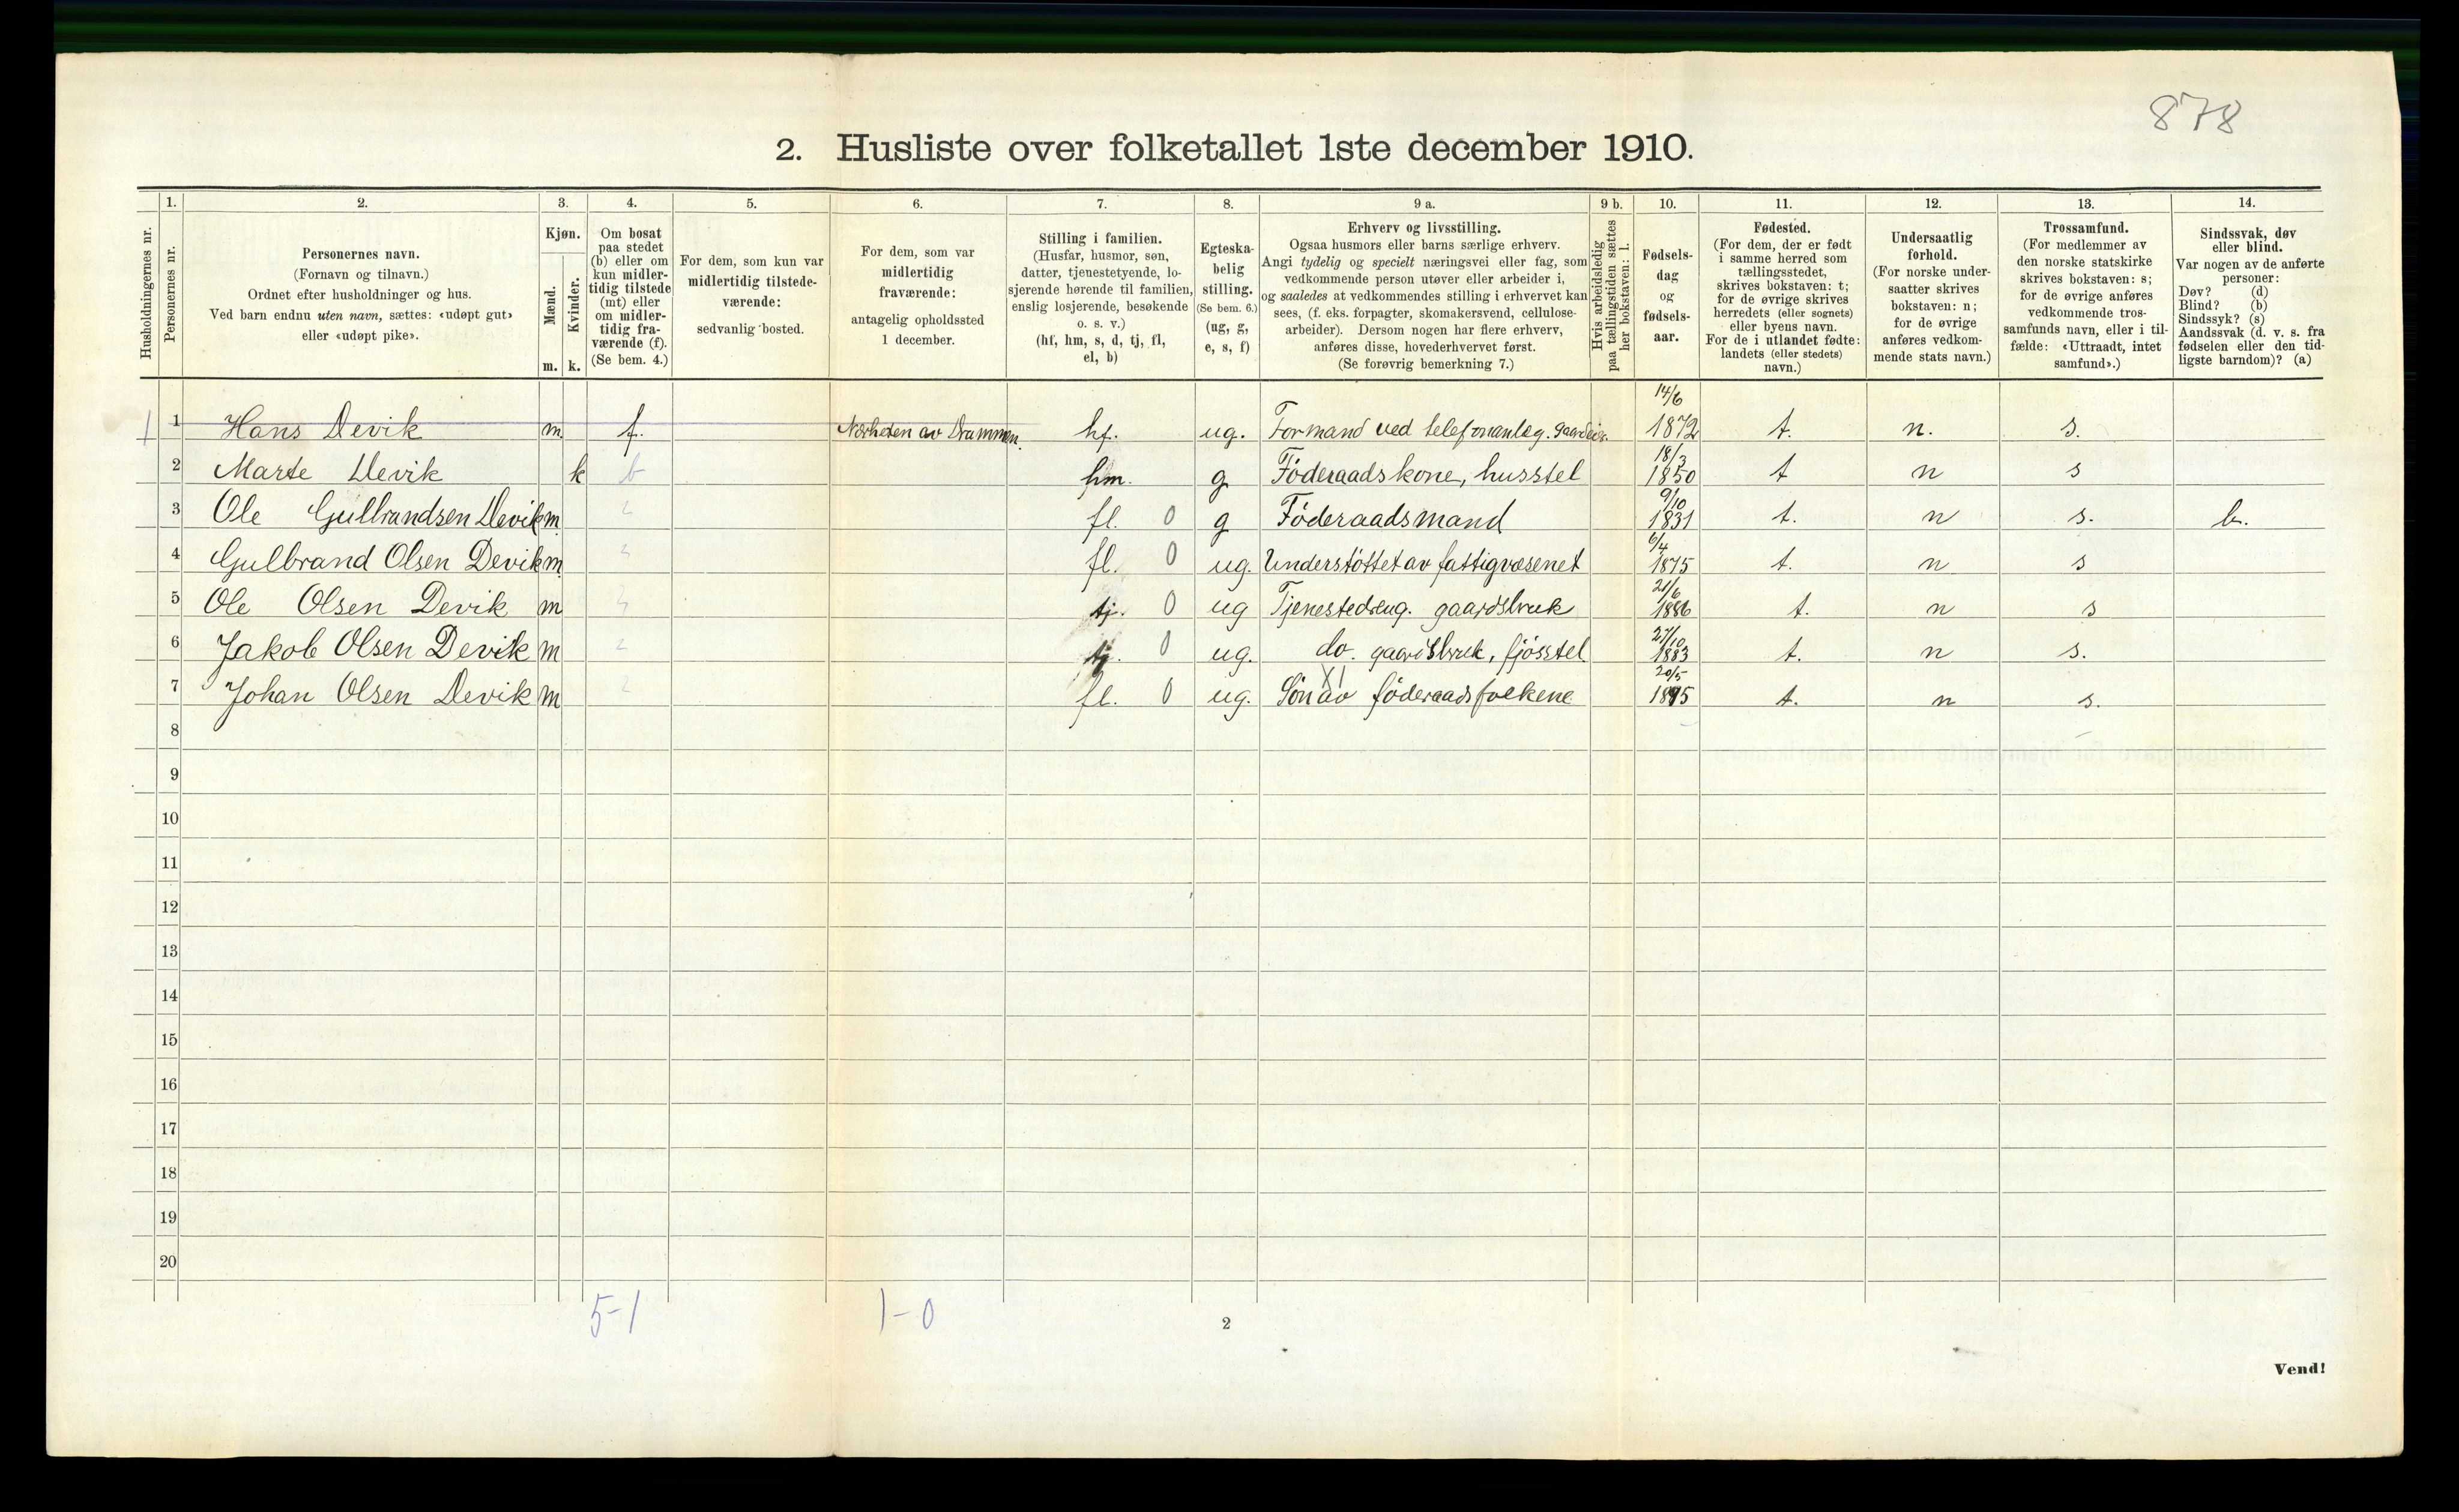 878
2. Husliste over folketallet 1ste december 1910.
1. 2. 3. 4. 5. 6. 7. 8. 9 a. 9 b. 10. 11. 12. 13. 14.
Husholdningernes nr.
Personernes nr.
Personernes navn.
(Fornavn og tilnavn.)
Ordnet efter husholdninger og hus.
Ved barn endnu uten navn, sættes: «udøpt gut»
eller «udøpt pike».
Kjøn.
Mænd.
Kvinder.
m. k.
Om bosat
paa stedet
(b) eller om
kun midler-
tidig tilstede
(mt) eller
om midler-
tidig fra-
værende (f).
(Se bem. 4.)
For dem, som kun var
midlertidig tilstede-
værende:
sedvanlig bosted.
For dem, som var
midlertidig
fraværende:
antagelig opholdssted
1 december.
Stilling i familien.
(Husfar, husmor, søn,
datter, tjenestetyende, lo-
sjerende hørende til familien,
enslig losjerende, besøkende
o. s. v.)
(hf, hm, s, d, tj, fl,
el, b)
Egteska-
belig
stilling.
(Se bem. 6.)
(ug, g,
e, s, f)
Erhverv og livsstilling.
Ogsaa husmors eller barns særlige erhverv.
Angi tydelig og specielt næringsvei eller fag, som
vedkommende person utøver eller arbeider i,
og saaledes at vedkommendes stilling i erhvervet kan
sees, (f. eks. forpagter, skomakersvend, cellulose-
arbeider). Dersom nogen har flere erhverv,
anføres disse, hovederhvervet først.
(Se forøvrig bemerkning 7.)
Hvis arbeidsledig
paa tællingstiden sættes
her bokstaven: l.
Fødsels-
dag
og
fødsels-
aar.
Fødested.
(For dem, der er født
i samme herred som
tællingsstedet,
skrives bokstaven: t;
for de øvrige skrives
herredets (eller sognets)
eller byens navn.
For de i utlandet fødte:
landets (eller stedets)
navn.)
Undersaatlig
forhold.
(For norske under-
saatter skrives
bokstaven: n;
for de øvrige
anføres vedkom-
mende stats navn.)
Trossamfund.
(For medlemmer av
den norske statskirke
skrives bokstaven: s;
for de øvrige anføres
vedkommende tros-
samfunds navn, eller i til-
fælde: «Uttraadt, intet
samfund».)
Sindssvak, døv
eller blind.
Var nogen av de anførte
personer:
Døv? (d)
Blind? (b)
Sindssyk? (s)
Aandssvak (d. v. s. fra
fødselen eller den tid-
ligste barndom)? (a)
1 1 Hans Devik m f. Nærheten av Drammen. hf. ug. Formand ved telefonanlæg. gaardeier. 14/6 1872 t. n. s.
2 Marte Devik k b hm. g Föderaadskone, husstel 18/3 1850 t n s
3 Ole Gulbrandsen Devik m. fl. 0 g Föderaadsmand 9/10 1831 t. n s. b.
4 Gulbrand Olsen Devik m. fl. 0 ug. Understöttet av fattigvæsenet 6/4 1875 t. n s
5 Ole Olsen Devik m tj. 0 ug Tjenestedreng. gaardsbruk 21/6 1886 t. n s
6 Jakob Olsen Devik m tj. 0 ug. do. gaardsbruk, fjösstel 27/10 1883 t. n s.
7 Johan Olsen Devik m fl. 0 ug. Sön av föderaadsfolkene 20/5 1895 t. n s.
8
9
10
11
12
13
14
15
16
17
18
19
20
5-1 1-0
2
Vend!